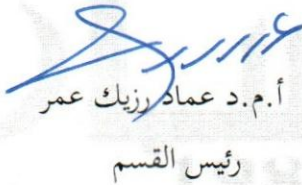 أ.م.د عماد رزيك عمر
رئيس القسم